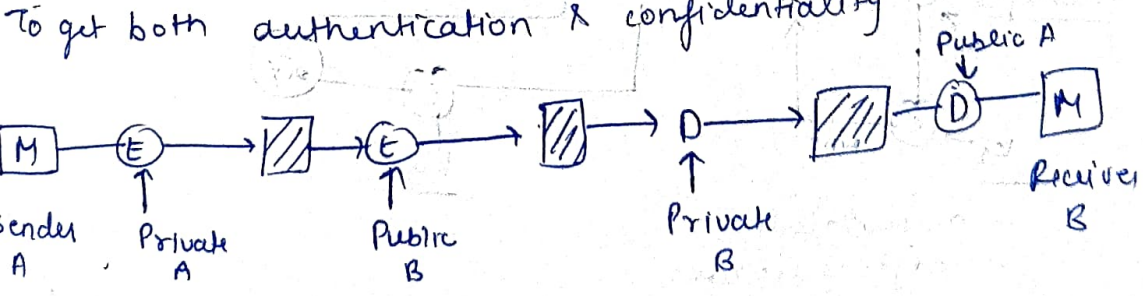 To get both authentication & confidentiality
Public A
M E E D D M
Sender Private Public Private Receiver
A A B B B